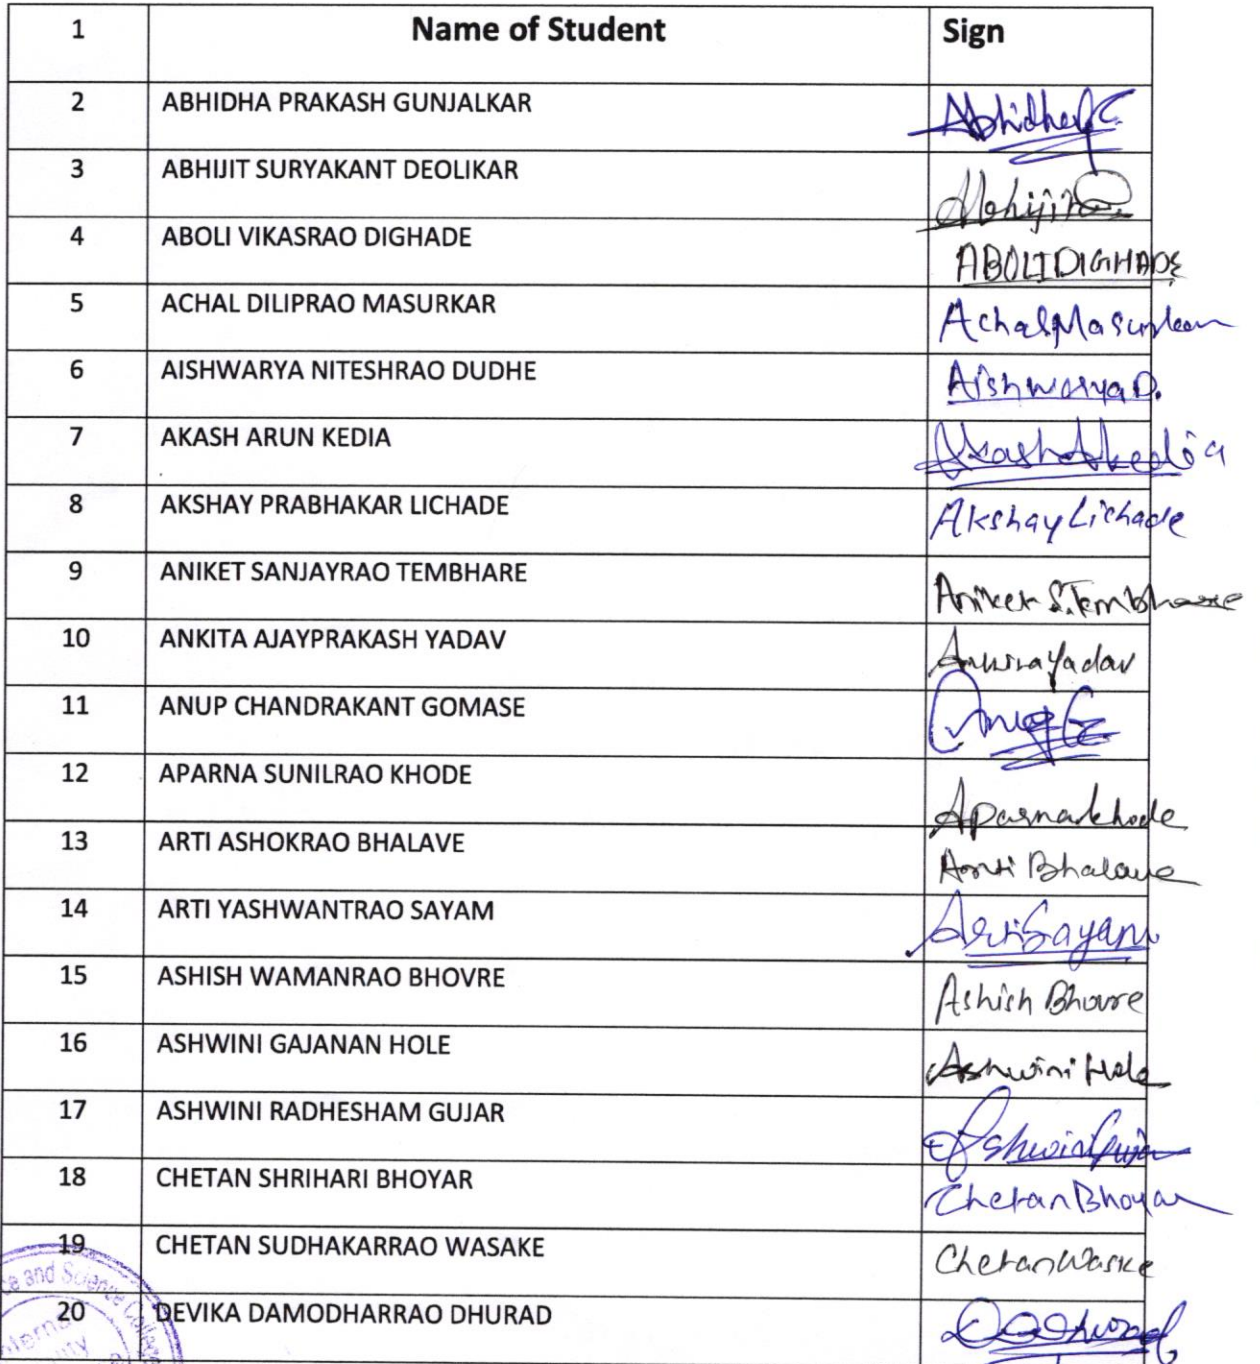 1 Name of Student Sign
2 ABHIDHA PRAKASH GUNJALKAR AbhidhaG
3 ABHIJIT SURYAKANT DEOLIKAR Abhijit
4 ABOLI VIKASRAO DIGHADE ABOLI DIGHADE
5 ACHAL DILIPRAO MASURKAR Achal Masurkar
6 AISHWARYA NITESHRAO DUDHE Aishwarya D.
7 AKASH ARUN KEDIA Akash A kedia
8 AKSHAY PRABHAKAR LICHADE Akshay Lichade
9 ANIKET SANJAYRAO TEMBHARE Aniket S. Tembhare
10 ANKITA AJAYPRAKASH YADAV Ankita Yadav
11 ANUP CHANDRAKANT GOMASE Anup G
12 APARNA SUNILRAO KHODE Aparna khode
13 ARTI ASHOKRAO BHALAVE Arti Bhalave
14 ARTI YASHWANTRAO SAYAM Arti Sayam
15 ASHISH WAMANRAO BHOVRE Ashish Bhovre
16 ASHWINI GAJANAN HOLE Ashwini Hole
17 ASHWINI RADHESHAM GUJAR Ashwini Gujar
18 CHETAN SHRIHARI BHOYAR Chetan Bhoyar
19 CHETAN SUDHAKARRAO WASAKE Chetan Waske
20 DEVIKA DAMODHARRAO DHURAD
ce and Science College